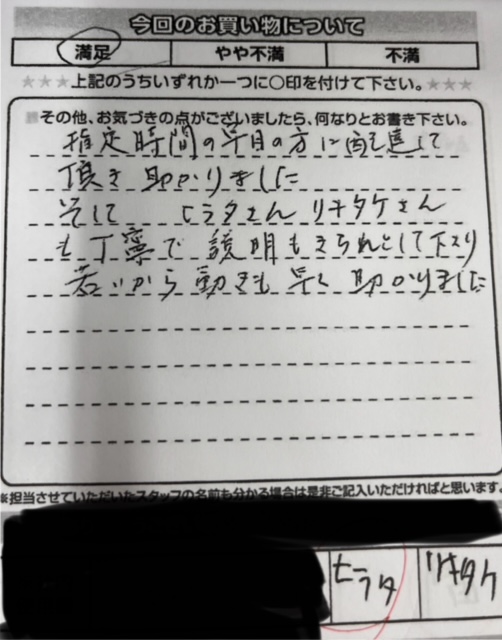 今回のお買い物について
満足 やや不満 不満
★★★上記のうちいずれか一つに○印を付けて下さい。★★★
その他、お気づきの点がございましたら、何なりとお書き下さい。
指定時間の早目の方に配達して
頂き 助かりました
そして ヒラタさん リキタケさん
も丁寧で 説明もきちんとして下さり
若いから 動きも 早く 助かりました
※担当させていただいたスタッフの名前も分かる場合は是非ご記入いただければと思います。
ヒラタ リキタケ